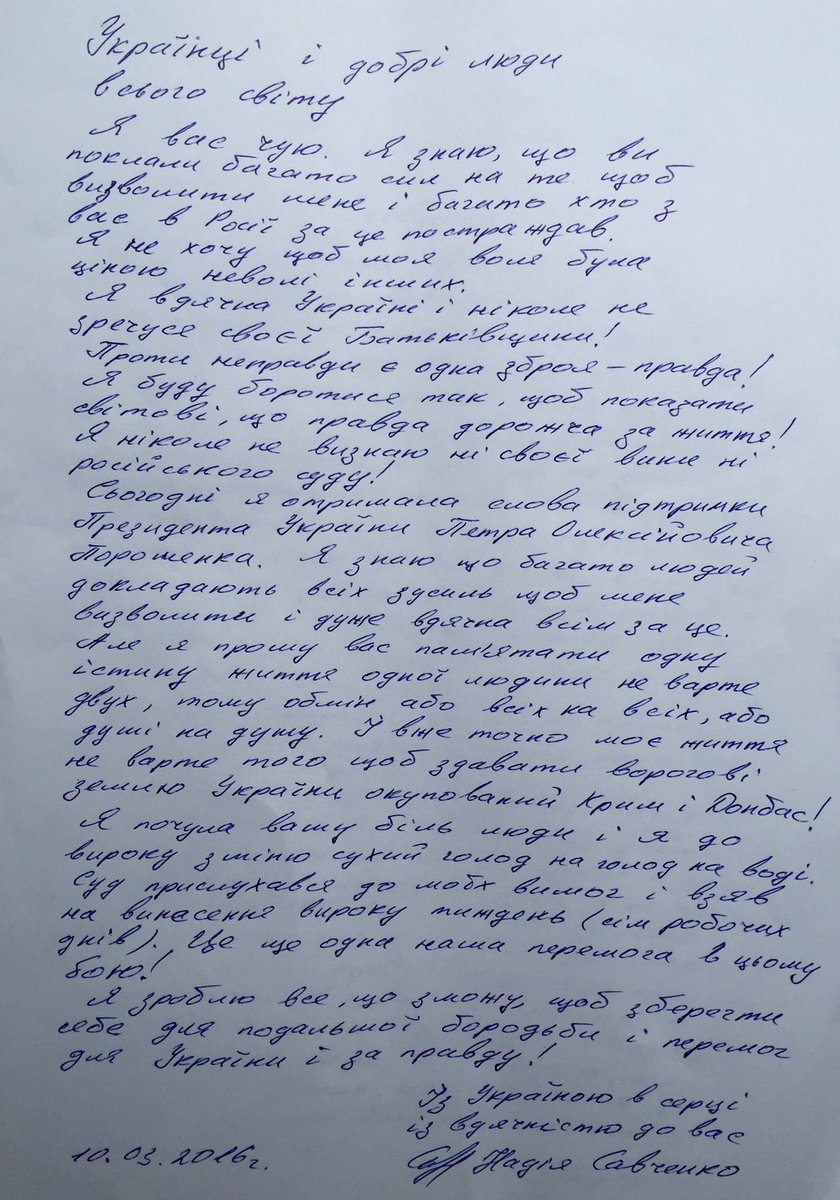 Українці і добрі люди
всього світу
Я вас чую. Я знаю, що ви
поклали багато сил на те щоб
визволити мене і багато хто з
вас в Росії за це постраждав.
Я не хочу щоб моя воля була
ціною неволі інших.
Я вдячна Україні і ніколе не
зречусе своєї Батьківщини!
Проти неправди є одна зброя – правда!
Я буду боротисе так, щоб показати
світові, що правда дорожча за життя!
Я ніколе не визнаю ні своєї вини ні
російського суду!
Сьогодні я отримала слова підтримки
Президента України Петра Олексійовича
Пороженка. Я знаю що багато людей
докладають всіх зусиль щоб мене
визволити і дуже вдячна всім за це.
Але я прошу вас пам'ятати одну
істину життя одної людини не варте
двух, тому обмін або всіх на всіх, або
душі на душу. І вже точно моє життя
не варте того щоб здавати ворогові
землю України окупований Крим і Донбас!
Я почула вашу біль люди і я до
вироку зміню сухий голод на голод на воді.
Суд прислухався до моїх вимог і взяв
на винесення вироку тиждень (сім робочих
днів). Це ще одна наша перемога в цьому
бою!
Я зроблю все, що зможу, щоб зберегти
себе для подальшої бородьби і перемог
для України і за правду!
Із Україною в серці
із вдячністю до вас
10.03.2016г. Надія Савченко